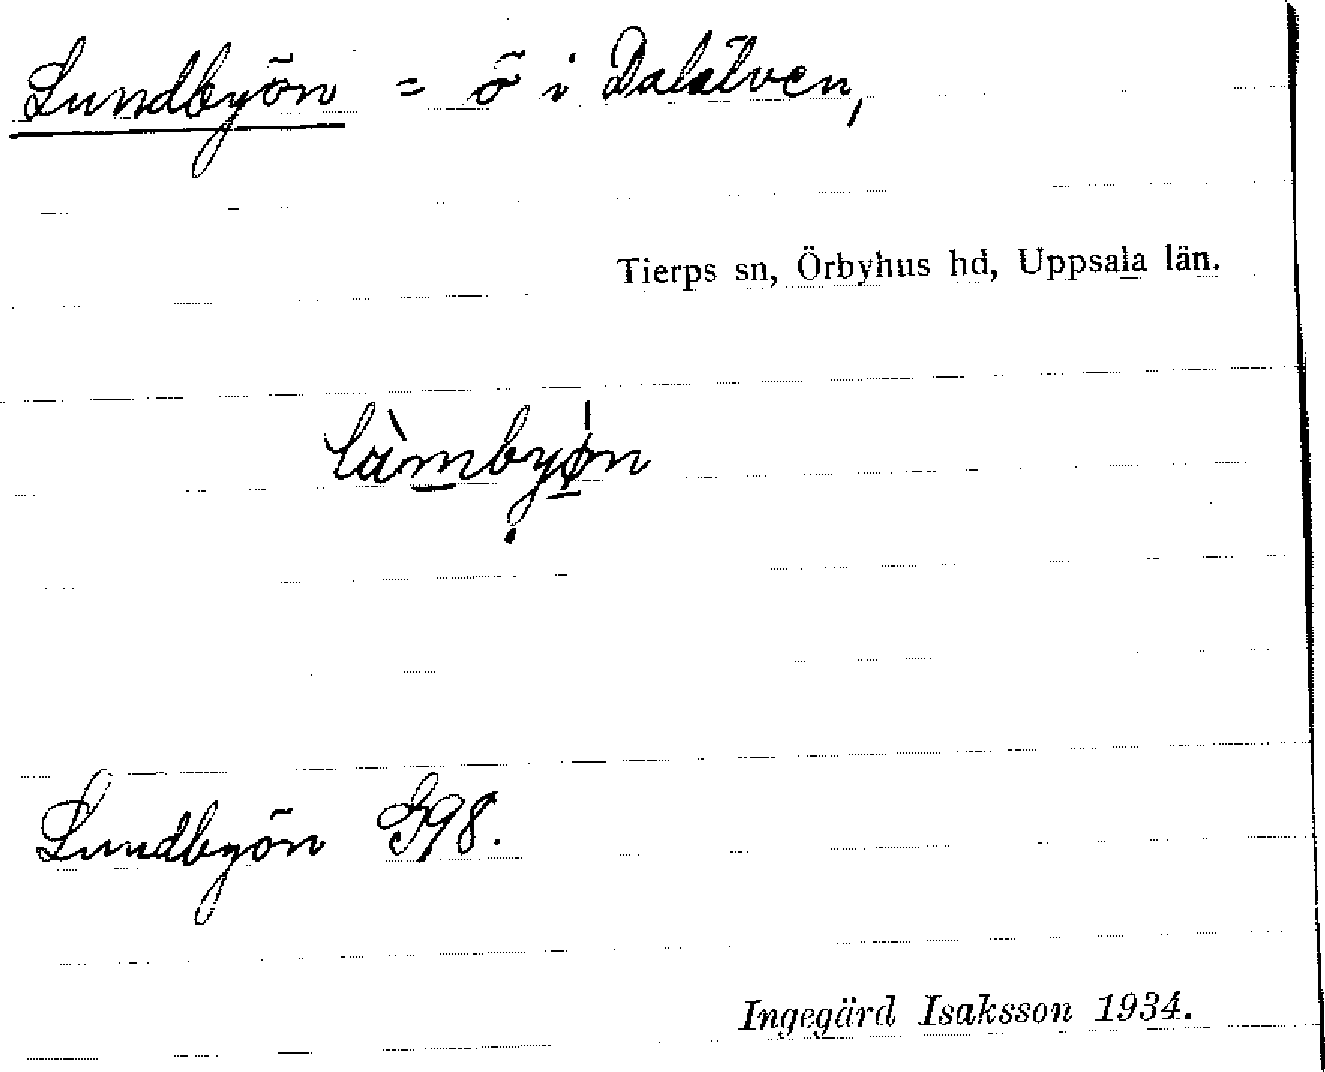 Lundbyön = ö i Dalälven,
Tierps sn, Örbyhus hd, Uppsala län.
Lundbyön G98.
Ingegärd Isaksson 1934.